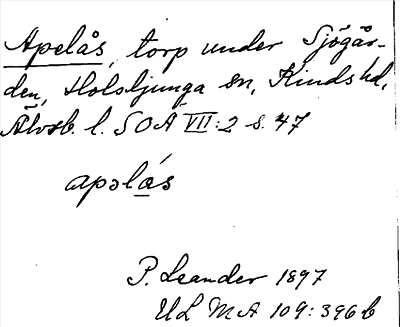 Apelås, torp under Sjögår-
den, Holsljunga sn, Kinds hd,
Älvsb. l. SOA VII:2 s. 47
apəlás
P. Leander 1897
ULMA 109:396 b